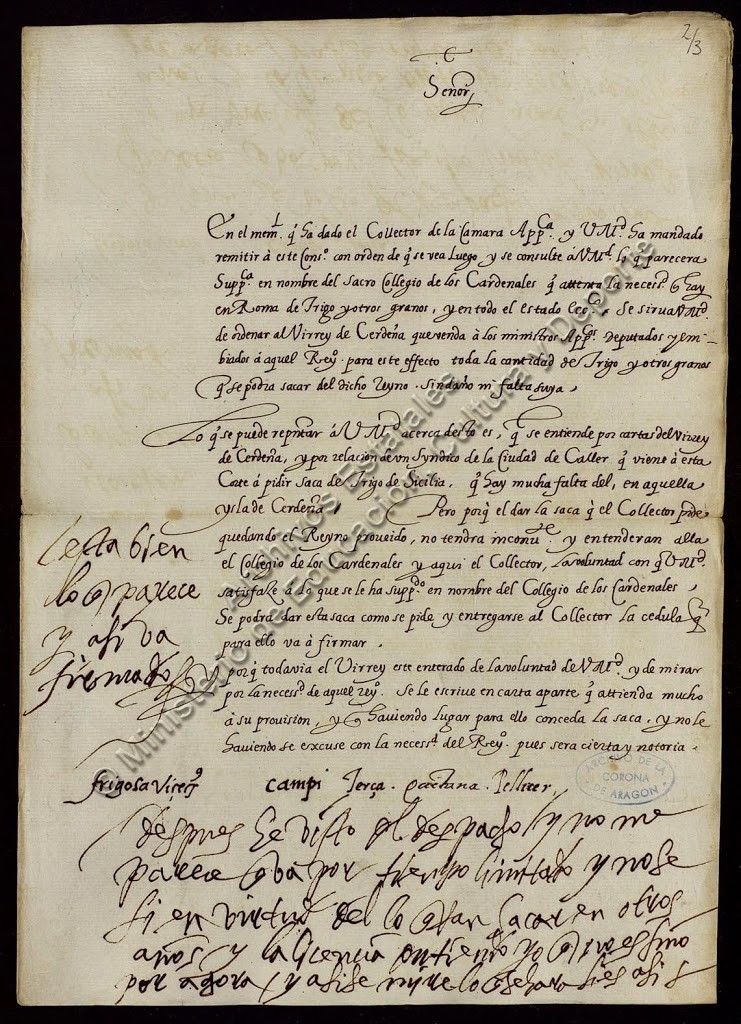 2/3
Señor
En el mem.l q̃ ha dado el Collector de la Camara App.ca y V M.d ha mandado
remitir à este Cons.o con orden de q̃ se vea luego y se consulte à V M.d lo q̃ parecera
Supp.ca en nombre del Sacro Collegio de los Cardenales q̃ attento la necess.d q̃ hay
en Roma de Trigo y otros granos, y en todo el estado Ecc.co Se sirva V M.d
de ordenar al Virrey de Cerdeña que venda à los ministros App.cos deputados y em-
biados á aquel Rey.o para este effecto toda la cantidad de Trigo y otros granos
q̃ se podra sacar del dicho Reyno. Sin daño ni falta suya.
Lo q̃ se puede repntar á V M.d acerca desto es, q̃ se entiende por cartas del Virrey
de Cerdeña, y por relacion de un Syndico de la Ciudad de Caller q̃ viene à esta
Corte á pidir saca de Trigo de Sicilia, q̃ hay mucha falta del, en aquella
ysla de Cerdeña. Pero porq̃ el dar la saca q̃ el Collector pide
quedando el Reyno proveido, no tendra inconu.te y entenderan alla
el Collegio de los Cardenales y aqui el Collector, la voluntad con q̃ V M.d
satisfaze à lo que se le ha supp.do en nombre del Collegio de los Cardenales
Se podra dar esta saca como se pide y entregarse al Collector la cedula q̃
para ello va à firmar.
porq̃ todavia el Virrey este enterado de la voluntad de V M.d y de mirar
por la necess.d de aquel rey.o Se le escrive en carta aparte q̃ attienda mucho
à su provision, y q̃ haviendo lugar para ello conceda la saca, y no le
haviendo se excuse con la necess.d del Rey.o pues sera cierta y notoria.
esta bien
lo q̃ parece
y asi va
firmado
frigola Vicec.s campi Terça. quintana. Pellicer.
despues he visto el despacho y no me
parece q̃ va por tiempo limitado y no se
si en virtud de lo q̃ran sacar en otros
años y la licencia entiendo yo q̃ no es sino
por agora y asi se mire lo q̃ sehara si es asi
ARCHIVO DE LA
CORONA
DE ARAGON
© Ministerio de Educación, Cultura y Deporte
Archivos Estatales